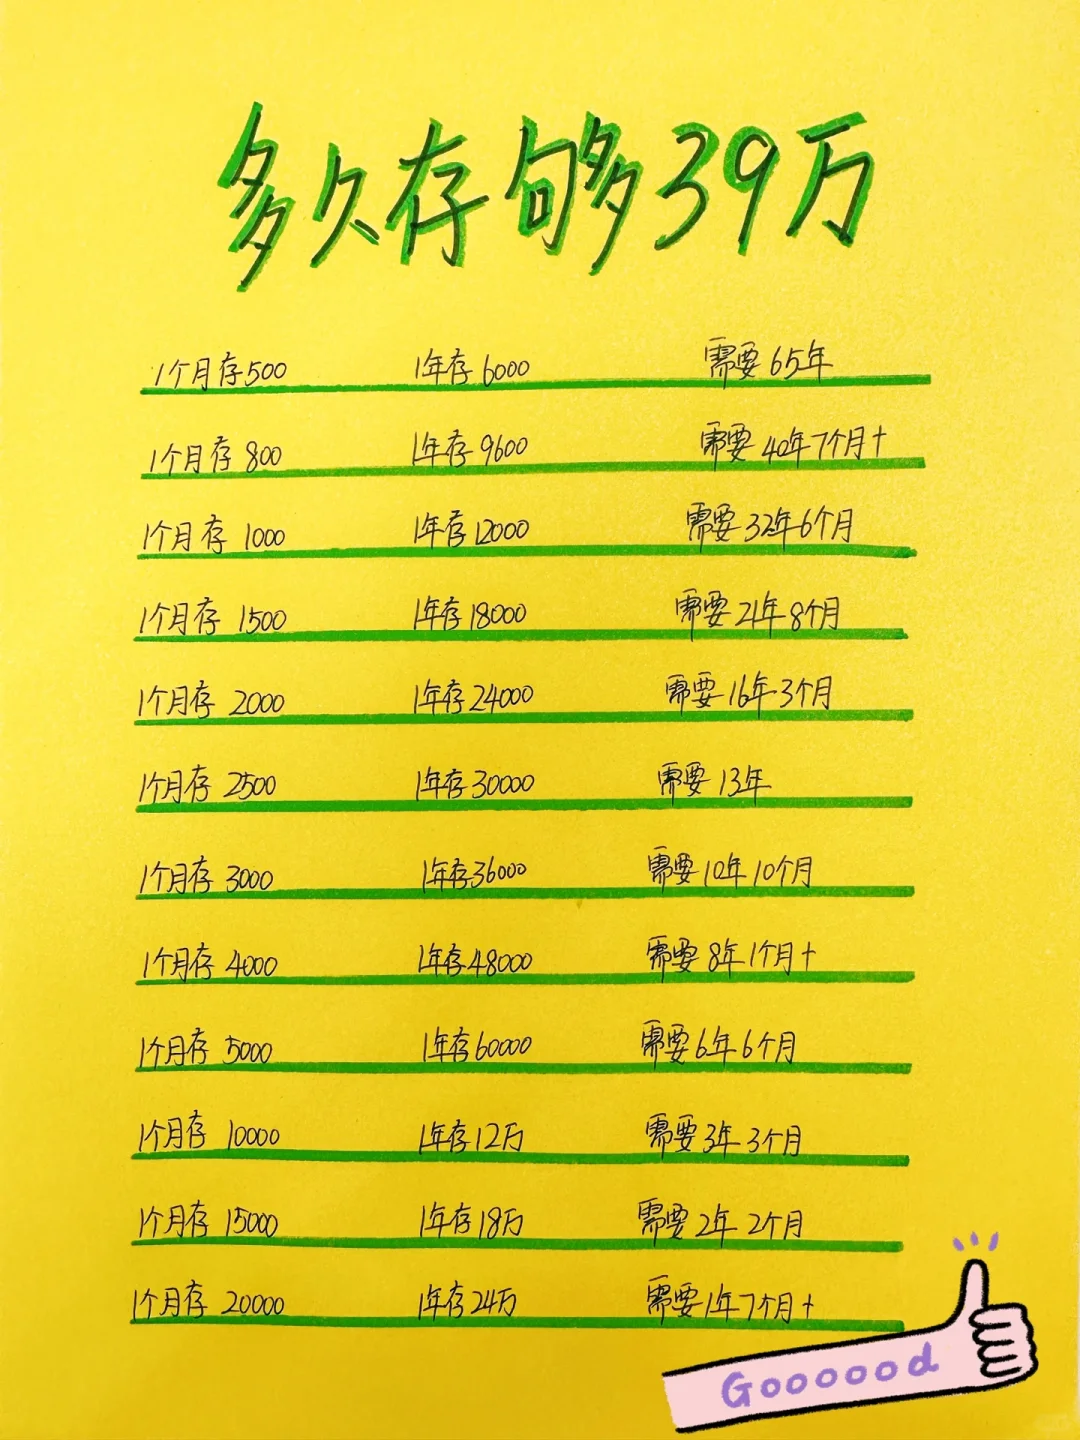 多久存够39万
1个月存500 1年存6000 需要65年
1个月存800 1年存9600 需要40年7个月+
1个月存 1000 1年存12000 需要32年6个月
1个月存 1500 1年存18000 需要21年8个月
1个月存 2000 1年存24000 需要16年3个月
1个月存 2500 1年存30000 需要13年
1个月存 3000 1年存36000 需要10年10个月
1个月存 4000 1年存48000 需要8年1个月+
1个月存 5000 1年存60000 需要6年6个月
1个月存 10000 1年存12万 需要3年3个月
1个月存 15000 1年存18万 需要2年2个月
1个月存 20000 1年存24万 需要1年7个月+
Goooood